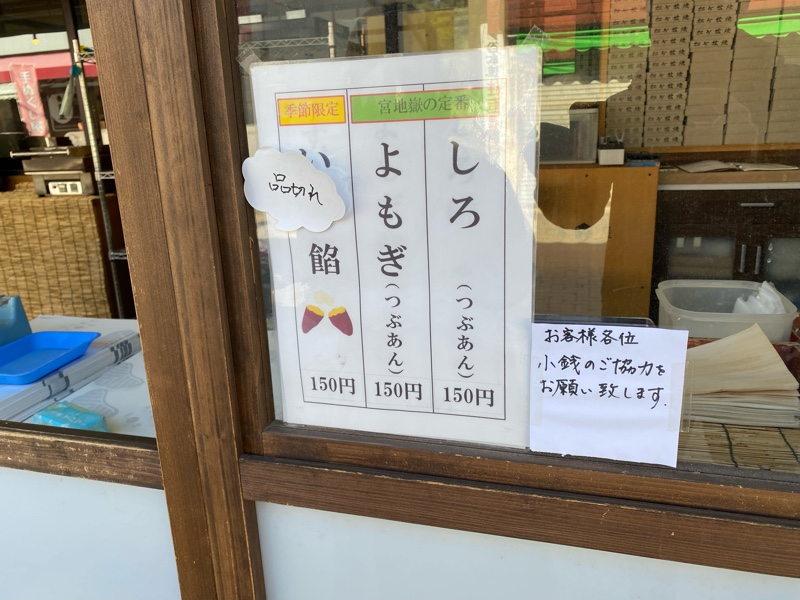 季節限定
宮地嶽の定番
しろ(つぶあん)
150円
よもぎ(つぶあん)
150円
品切れ
餡
150円
お客様各位
小銭のご協力を
お願い致します.